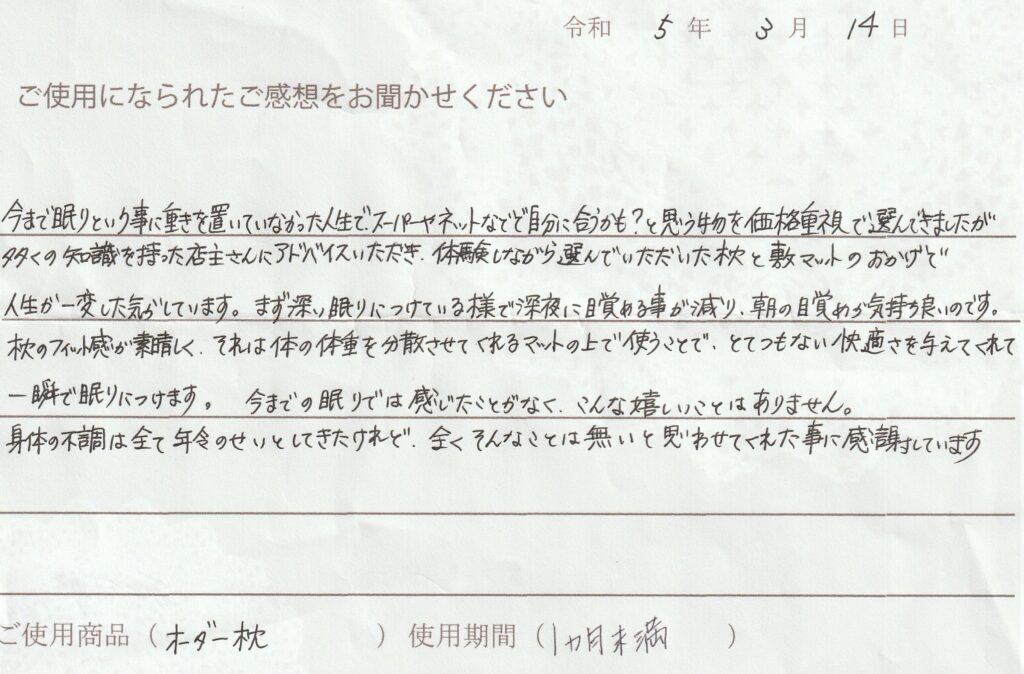 令和 5 年 3 月 14 日
ご使用になられたご感想をお聞かせください
今まで眠りという事に重きを置いていなかった人生で、スーパーやネットなどで自分に合うかも?と思う物を価格重視で選んできましたが
多くの知識を持った店主さんにアドバイスいただき、体験しながら選んでいただいた枕と敷マットのおかげで
人生が一変した気がしています。まず深い眠りにつけている様で深夜に目覚める事が減り、朝の目覚めが気持ち良いのです。
枕のフィット感が素晴しく、それは体の体重を分散させてくれるマットの上で使うことで、とてつもない快適さを与えてくれて
一瞬で眠りにつけます。 今までの眠りでは感じたことがなく、こんな嬉しいことはありません。
身体の不調は全て年令のせいとしてきたけれど、全くそんなことは無いと思わせてくれた事に感謝しています
ご使用商品( オーダー枕 ) 使用期間( 1ヵ月未満 )